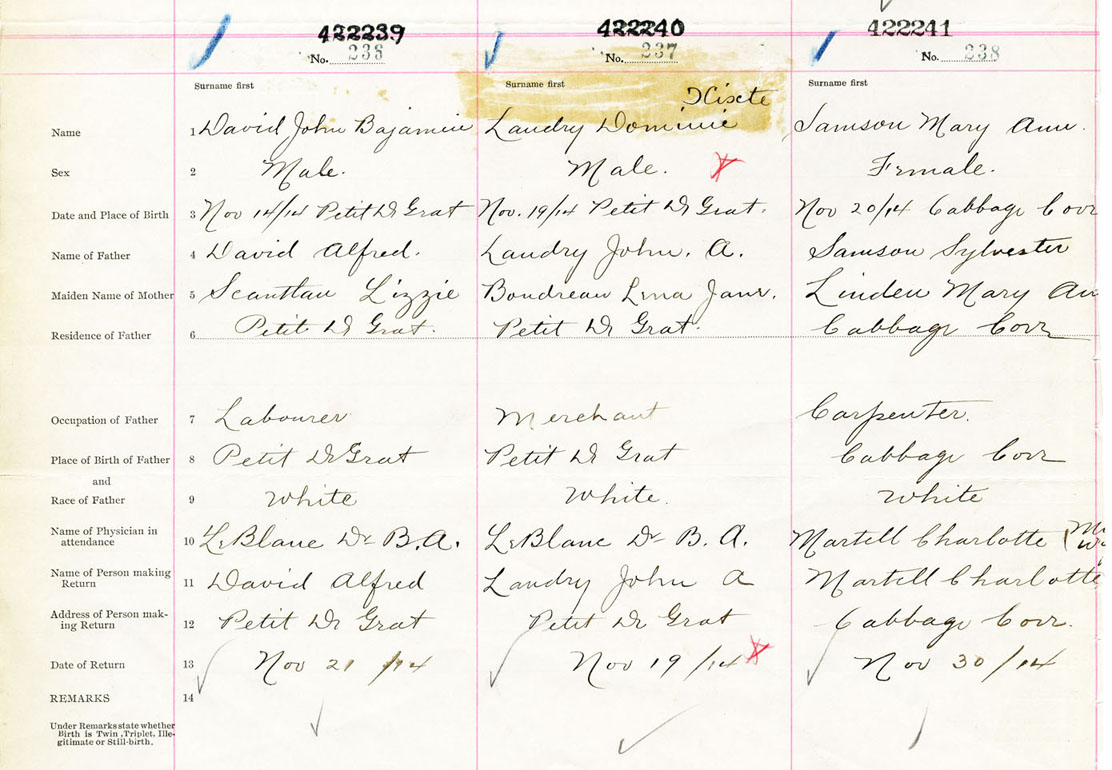 422239 422240 422241
No. 236 No. 237 No. 238
Surname first Surname first Surname first
Xixte
Name 1 David John Bajamin Landry Dominic Samson Mary Ann.
Sex 2 Male. Male. Female.
Date and Place of Birth 3 Nov 14/14 Petit De Grat Nov. 19/14 Petit De Grat. Nov 20/14 Cabbage Cove
Name of Father 4 David Alfred. Landry John. A. Samson Sylvester
Maiden Name of Mother 5 Scanttan Lizzie Boudreau Lena Jane. Linden Mary An
Residence of Father 6 Petit De Grat. Petit De Grat. Cabbage Cove
Occupation of Father 7 Labourer Merchant Carpenter.
Place of Birth of Father 8 Petit De Grat Petit De Grat Cabbage Cove
and
Race of Father 9 White White. White
Name of Physician in
attendance 10 LeBlanc Dr B.A. LeBlanc Dr B. A. Martell Charlotte
Name of Person making
Return 11 David Alfred Landry John A Martell Charlotte
Address of Person mak-
ing Return 12 Petit De Grat Petit De Grat Cabbage Cove.
Date of Return 13 Nov 21 /14 Nov 19 /14 Nov 30 /14
REMARKS 14
Under Remarks state whether
Birth is Twin, Triplet, Ille-
gitimate or Still-birth.